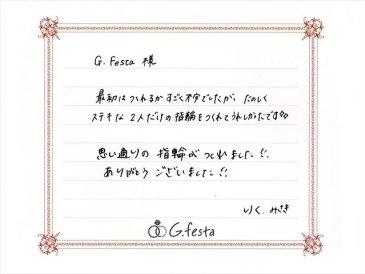 G.Festa 様
最初はつくれるかすごく不安でしたが、たのしく
ステキな2人だけの指輪をつくれてうれしかったです♡♡
思い通りの指輪がつくれました!!
ありがとうございました!!
りく、みさき
G.festa